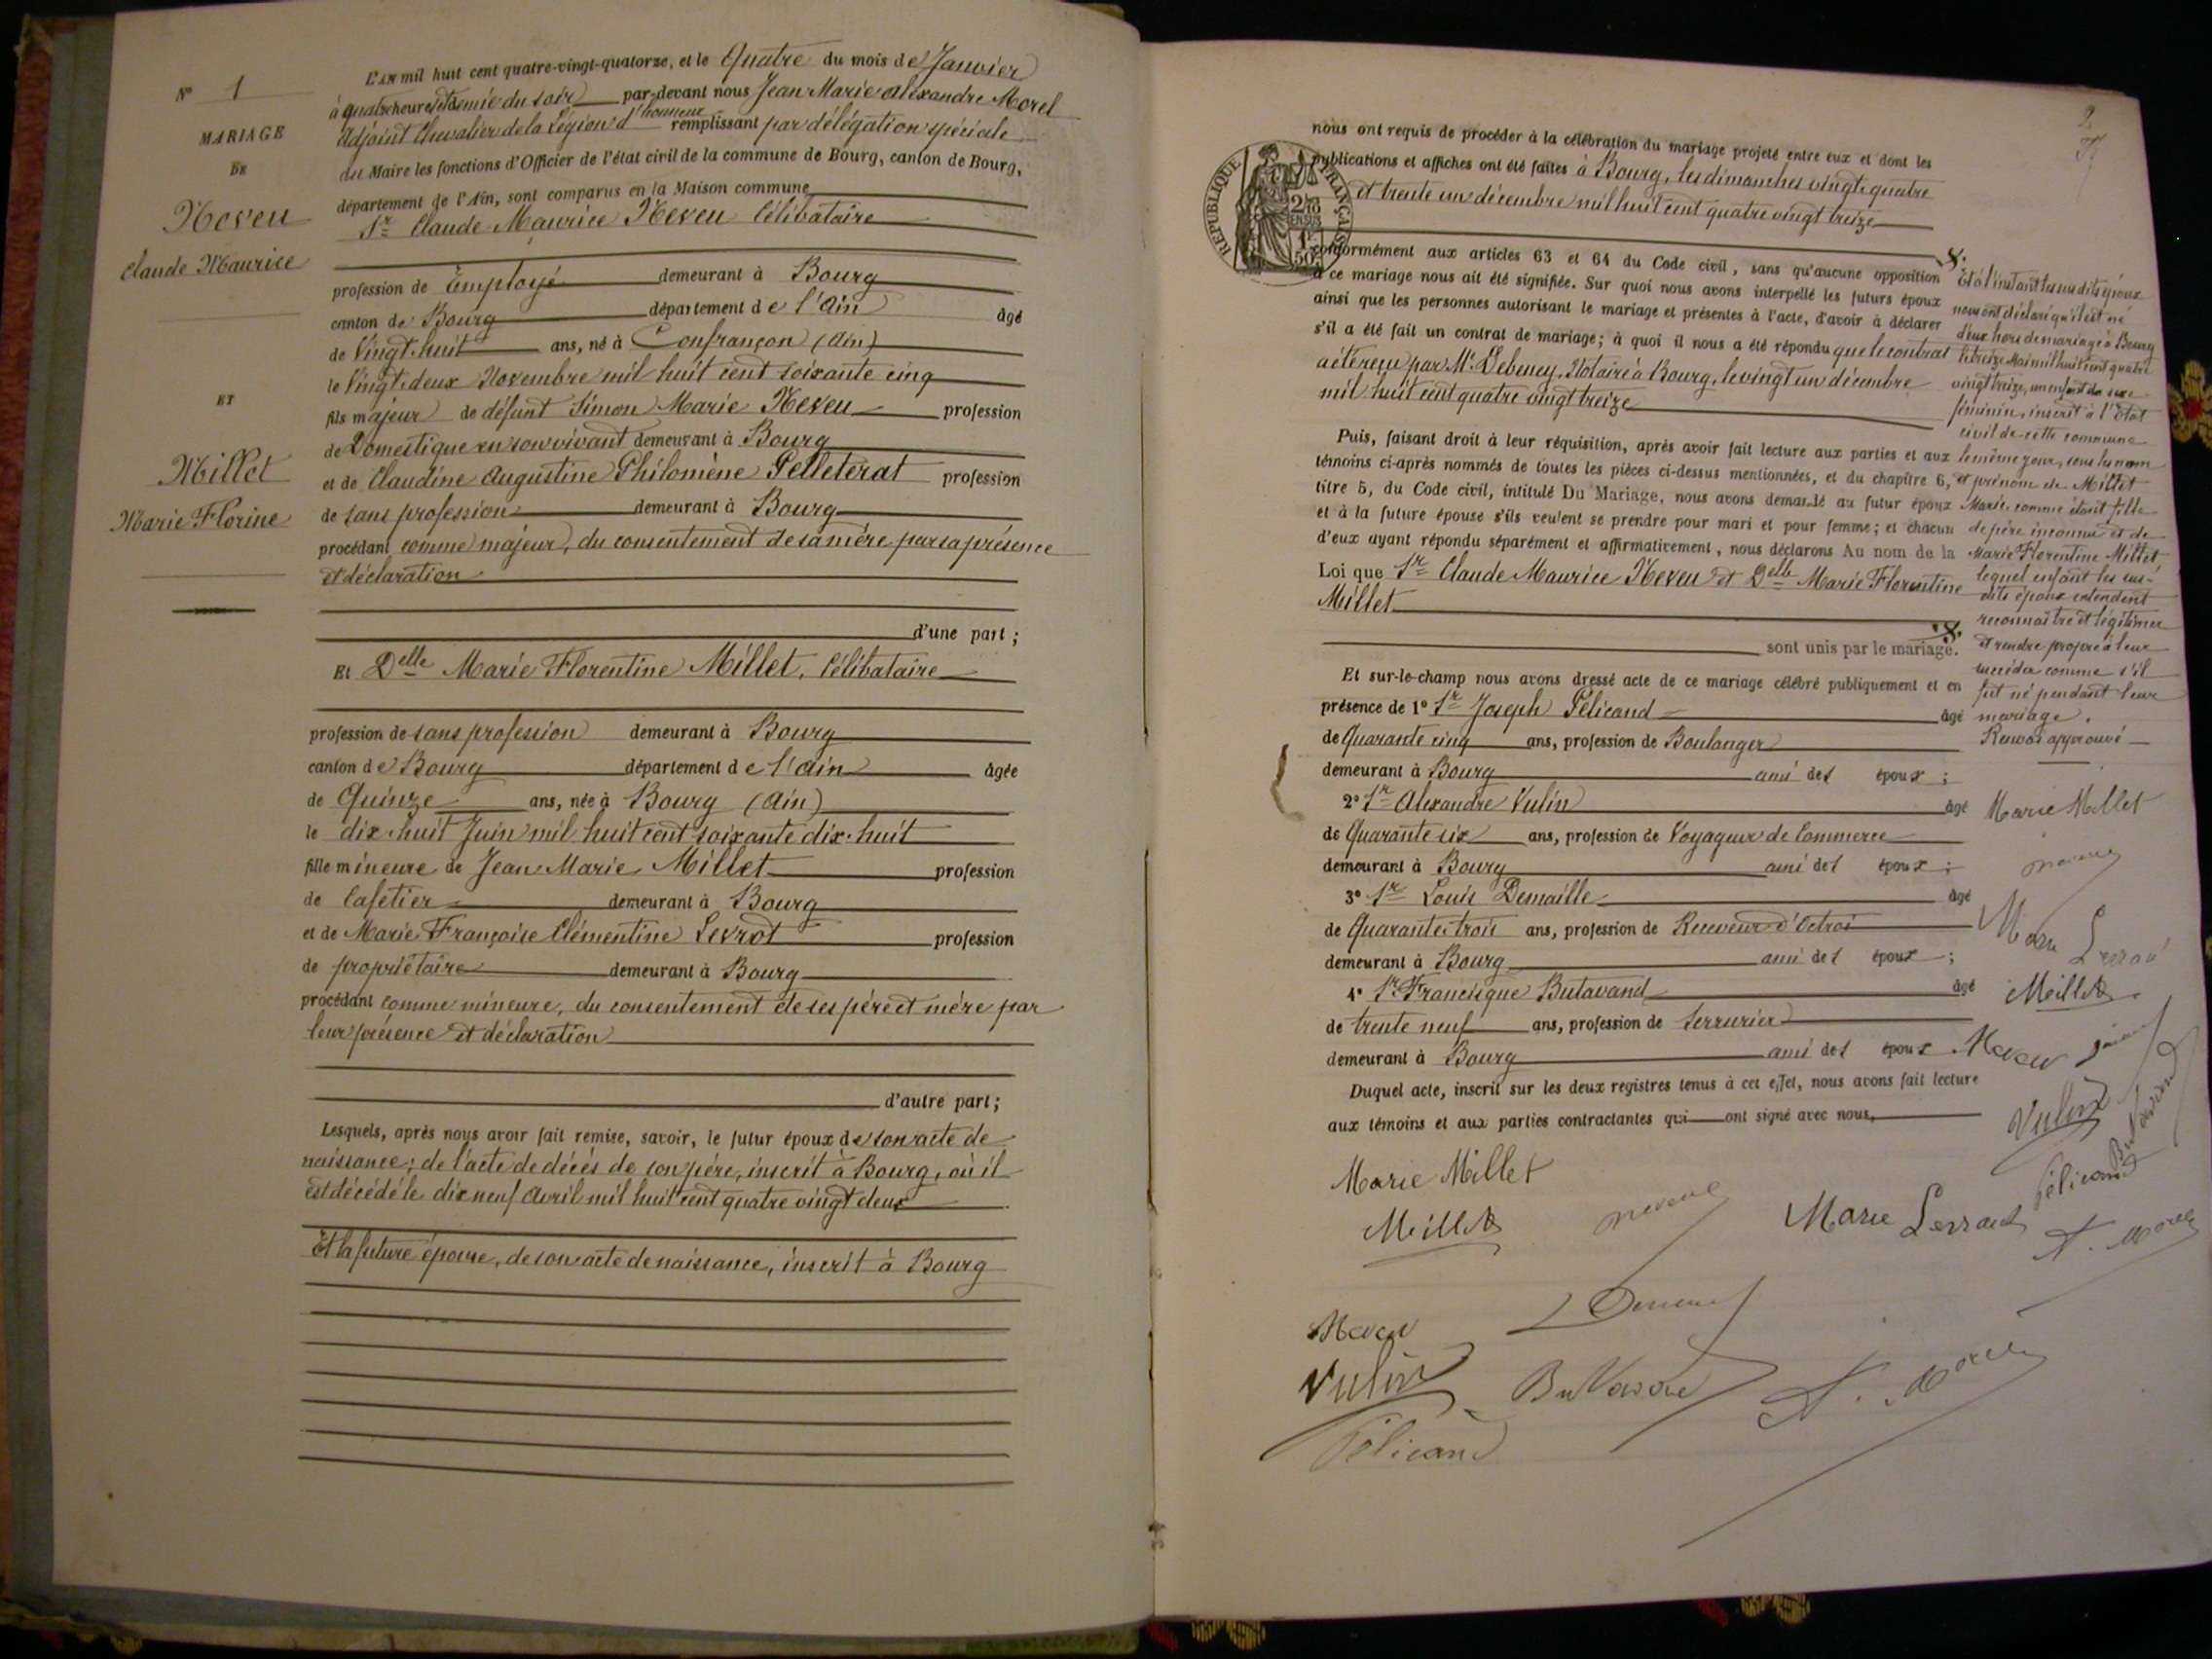 N° 1
MARIAGE
DE
Neveu
Claude Maurice
ET
Millet
Marie Florine
L'AN mil huit cent quatre-vingt-quatorze, et le Quatre du mois de Janvier
à quatre heures et demie du soir par-devant nous Jean Marie Alexandre Morel
Adjoint Chevalier de la Légion d'honneur remplissant par délégation spéciale
du Maire les fonctions d'Officier de l'état civil de la commune de Bourg, canton de Bourg,
département de l'Ain, sont comparus en la Maison commune
Sr Claude Maurice Neveu Célibataire
profession de Employé demeurant à Bourg
canton de Bourg département de l'Ain âgé
de Vingt-huit ans, né à Confrançon (Ain)
le Vingt-deux Novembre mil huit cent soixante cinq
fils majeur de défunt Simon Marie Neveu profession
de Domestique en son vivant demeurant à Bourg
et de Claudine Augustine Philomène Pelleterat profession
de sans profession demeurant à Bourg
procédant comme majeur, du consentement de sa mère par sa présence
et déclaration
d'une part ;
Et Delle Marie Florentine Millet, Célibataire
profession de sans profession demeurant à Bourg
canton de Bourg département de l'Ain âgée
de Quinze ans, née à Bourg (Ain)
le dix-huit Juin mil huit cent soixante dix-huit
fille mineure de Jean Marie Millet profession
de Cafetier demeurant à Bourg
et de Marie Françoise Clémentine Levrot profession
de propriétaire demeurant à Bourg
procédant comme mineure, du consentement de ses père et mère par
leur présence et déclaration
d'autre part ;
Lesquels, après nous avoir fait remise, savoir, le futur époux de son acte de
naissance ; de l'acte de décès de son père, inscrit à Bourg, où il
est décédé le dix neuf Avril mil huit cent quatre vingt deux
Et la future épouse, de son acte de naissance, inscrit à Bourg
2
nous ont requis de procéder à la célébration du mariage projeté entre eux et dont les
publications et affiches ont été faites à Bourg, les dimanches vingt-quatre
et trente un décembre mil huit cent quatre vingt treize
REPUBLIQUE FRANÇAISE
2/10 EN SUS
1F 50c
conformément aux articles 63 et 64 du Code civil, sans qu'aucune opposition
à ce mariage nous ait été signifiée. Sur quoi nous avons interpellé les futurs époux
ainsi que les personnes autorisant le mariage et présentes à l'acte, d'avoir à déclarer
s'il a été fait un contrat de mariage ; à quoi il nous a été répondu que le contrat
a été reçu par Me Debeney, Notaire à Bourg, le vingt un décembre
mil huit cent quatre vingt treize
Puis, faisant droit à leur réquisition, après avoir fait lecture aux parties et aux
témoins ci-après nommés de toutes les pièces ci-dessus mentionnées, et du chapitre 6,
titre 5, du Code civil, intitulé Du Mariage, nous avons demandé au futur époux
et à la future épouse s'ils veulent se prendre pour mari et pour femme ; et chacun
d'eux ayant répondu séparément et affirmativement, nous déclarons Au nom de la
Loi que Sr Claude Maurice Neveu et Delle Marie Florentine
Millet
sont unis par le mariage.
Et sur-le-champ nous avons dressé acte de ce mariage célébré publiquement et en
présence de 1° Sr Joseph Pélicand âgé
de Quarante cinq ans, profession de Boulanger
demeurant à Bourg ami des époux ;
2° Sr Alexandre Vulin âgé
de Quarante six ans, profession de Voyageur de Commerce
demeurant à Bourg ami des époux ;
3° Sr Louis Demaille âgé
de Quarante-trois ans, profession de Receveur d'Octroi
demeurant à Bourg ami des époux ;
4° Sr Francisque Butavand âgé
de trente neuf ans, profession de Serrurier
demeurant à Bourg ami des époux
Duquel acte, inscrit sur les deux registres tenus à cet effet, nous avons fait lecture
aux témoins et aux parties contractantes qui ont signé avec nous,
Marie Millet
Millet
Marie Levrot
Neveu
Vulin
Butavand
A. Morel
Pélicand
Et à l'instant les susdits époux
nous ont déclaré qu'il est né
d'eux hors de mariage à Bourg
le treize Mai mil huit cent quatre
vingt treize, un enfant du sexe
féminin, inscrit à l'Etat
civil de cette commune
le même jour, sous les nom
et prénom de Millet
Marie, comme étant fille
de père inconnu et de
Marie Florentine Millet
lequel enfant les sus-
dits époux entendent
reconnaître et légitimer
et rendre propre à leur
succéder comme s'il
fut né pendant leur
mariage.
Renvoi approuvé
Marie Millet
Marie Levrot
Millet
Neveu
Vulin
Butavand
Pélicand
A. Morel